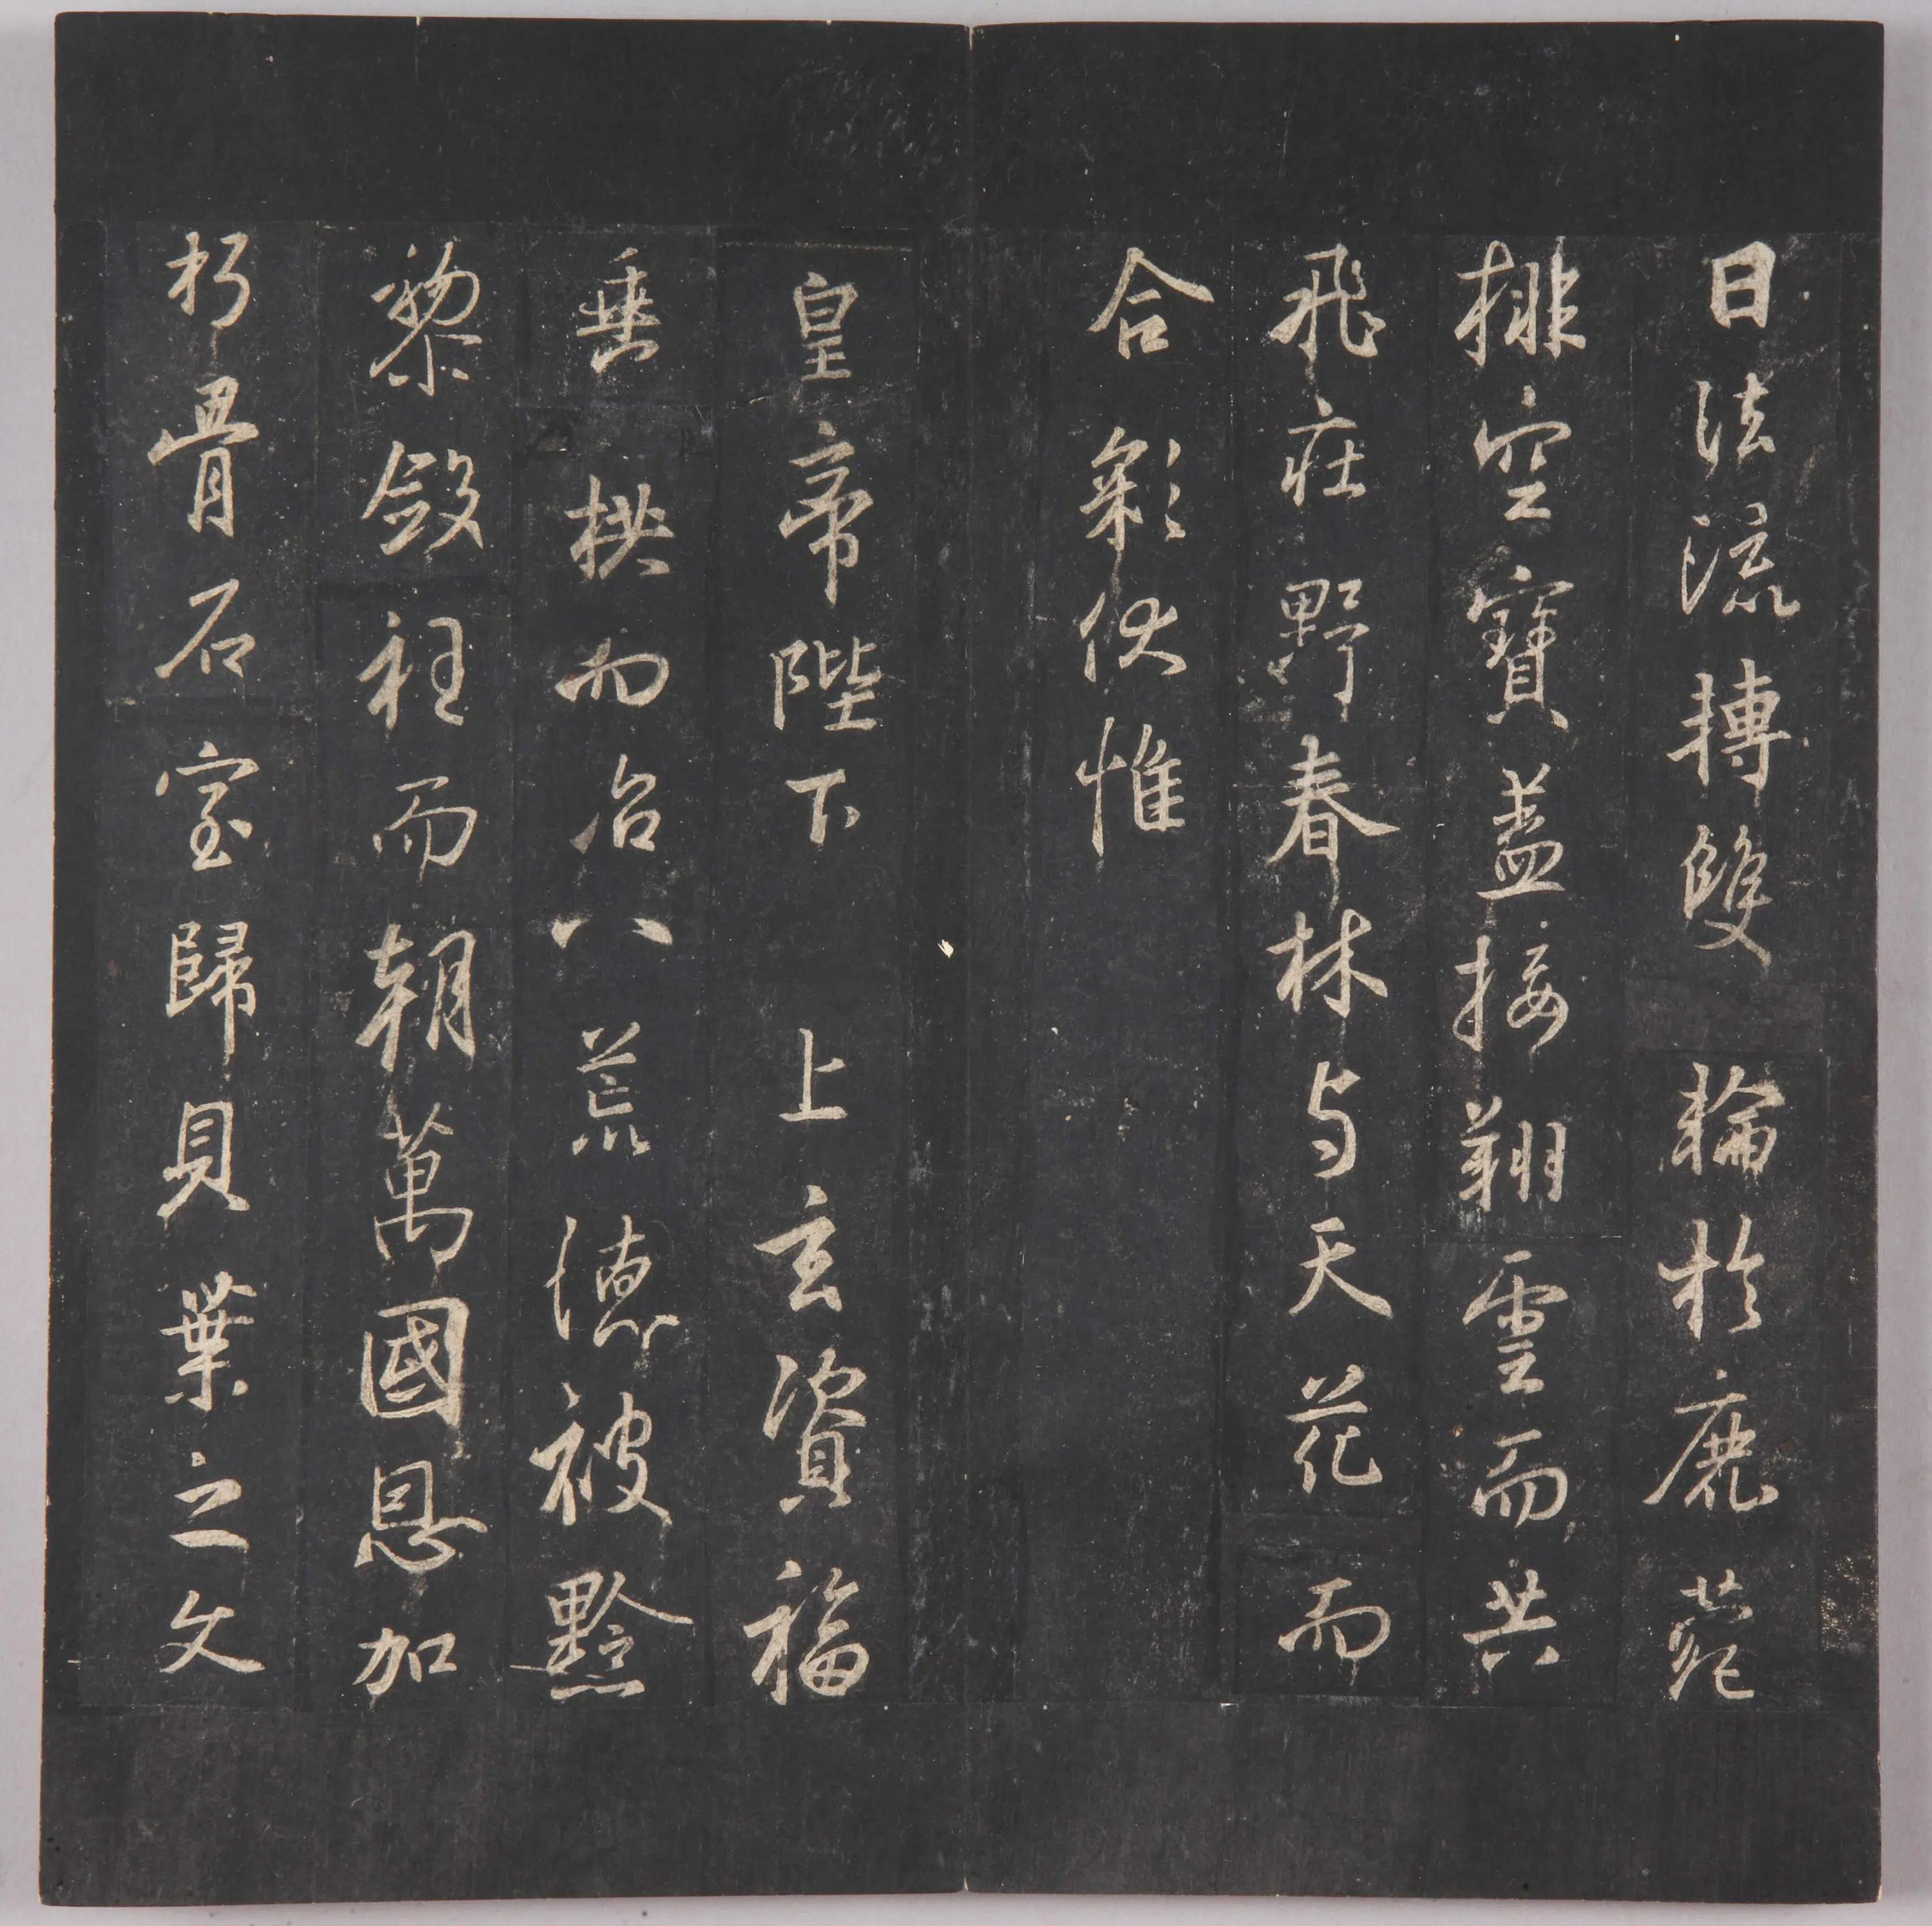 日法流摶雙輪於鹿菀
排空寶蓋接翔雲而共
飛莊野春林与天花而
合彩伏惟
皇帝陛下上玄資福
垂拱而治八荒德被黔
黎斂衽而朝萬國恩加
朽骨石室歸貝葉之文